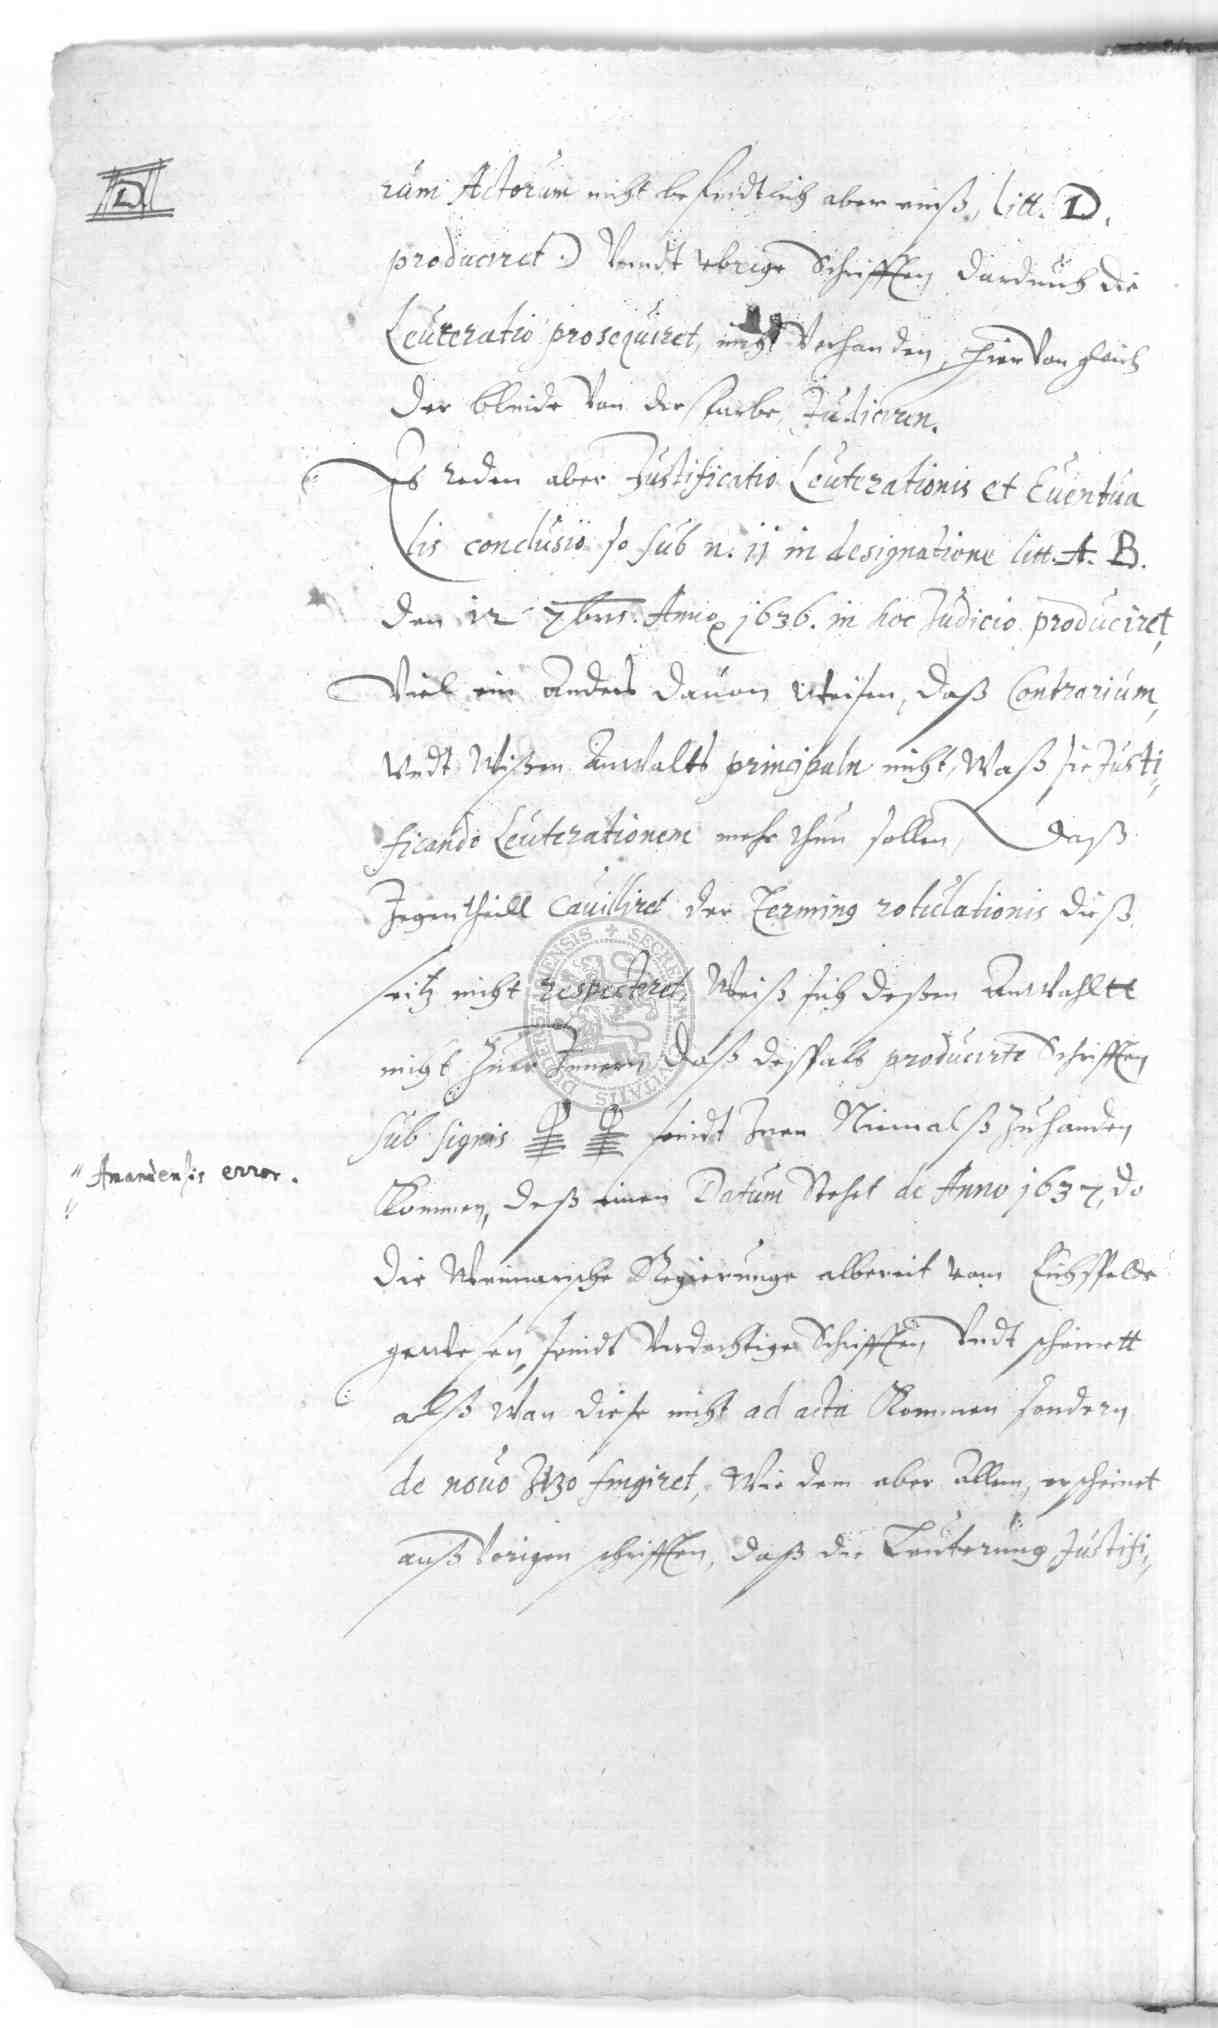 D
rum Actorum nicht befindtlich aber einß, litt. D.
produciret.) Vnndt vbrige Schrifften dardurch die
Leuteratio prosequiret, nicht Verhanden, hier von gleich
der bleinde Von der farbe, Judiciren.
Es reden aber Justificatio Leuterationis et Euentua
lis conclusio so sub n. 11 in designatione litt. A. B.
den 12 7bris. Anno 1636. in hoc Judicio produciret,
Viel ein Anders dauon weisen, daß Contrarium,
Vndt Wißen Anwalts principaln nicht, Waß sie Justi,,
ficando Leuterationem mehr thun sollen, daß
Jegentheill Cauilliret der Terming rotulationis dieß
seitz nicht respectiret, Weiß sich deßen Anwahltt
nicht Zuer Innern, daß deßfalß producirte Schrifften
sub signis seindt Inen Niemalß Zuhanden
Kommen, deß einen Datum Stehet de Anno 1637, do
"Amanuensis error.
die Weimarische Regierunge albereit vom Eichsfelde
gewesen, seindt Verdechtige Schrifften, Vndt scheinett
alß Wan diese nicht ad acta Kommen sondern
de nouo Itzo fingiret, Wie dem aber Allem, erscheinet
auß Vorigen schrifften, daß die Leuterung Justifi,,
SECRETUM